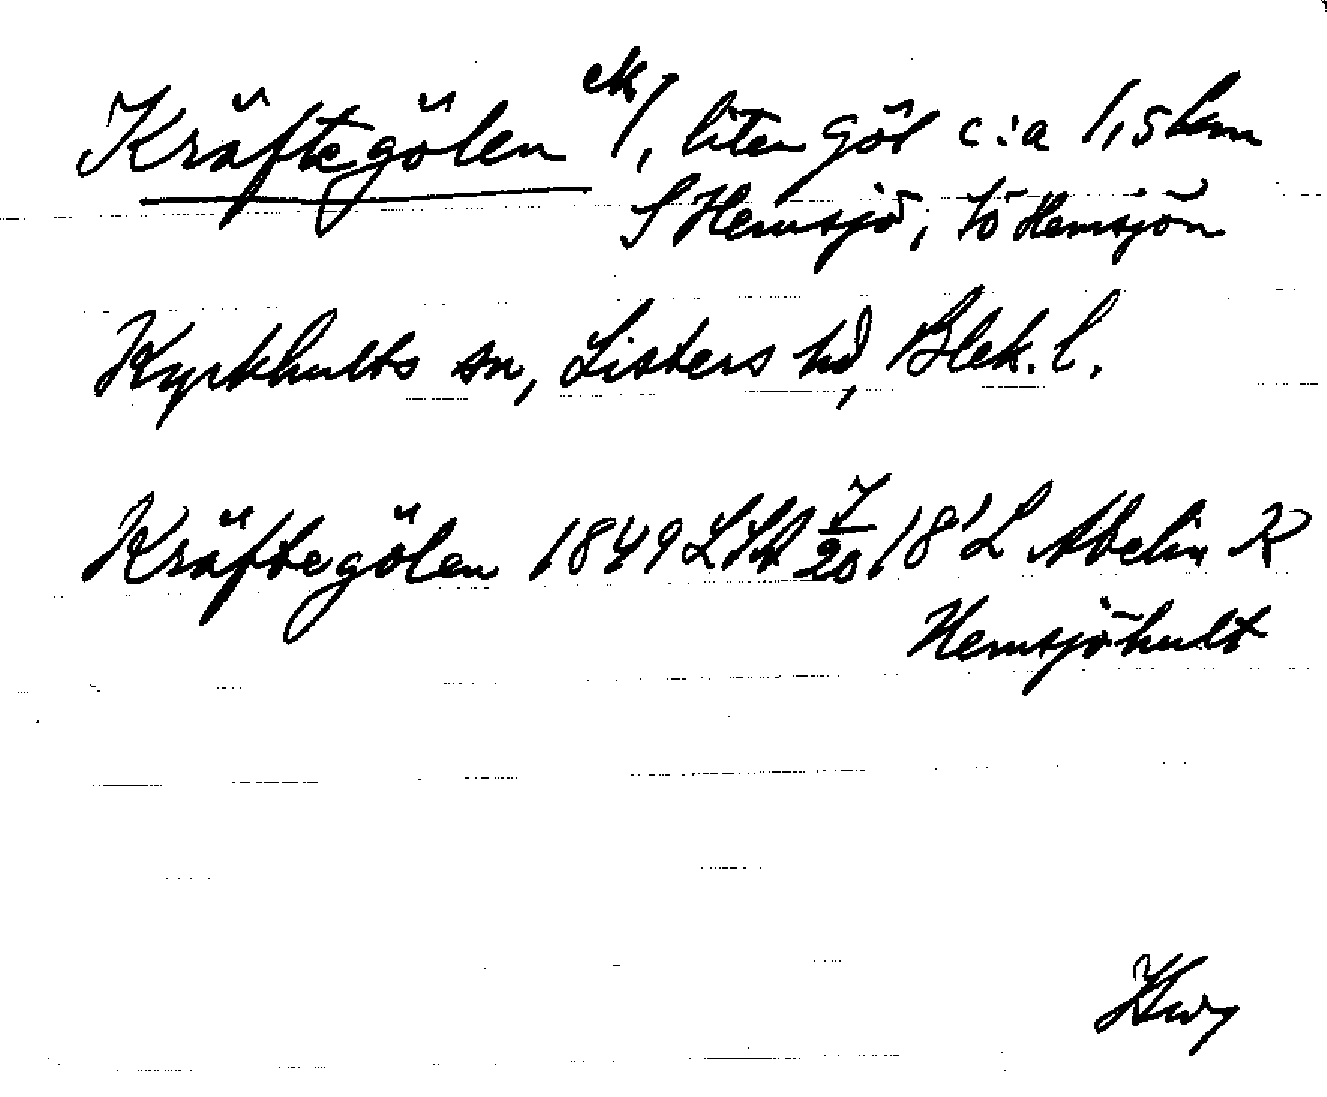 Kräftegölen ek/, liten göl c:a 1,5 km
S Hemsjö; SÖ Hemsjön
Kyrkhults sn, Listers hd, Blek. l.
Kräftegölen 1849 LSA 7/20, 18' L Abelin K
Hemsjöhult